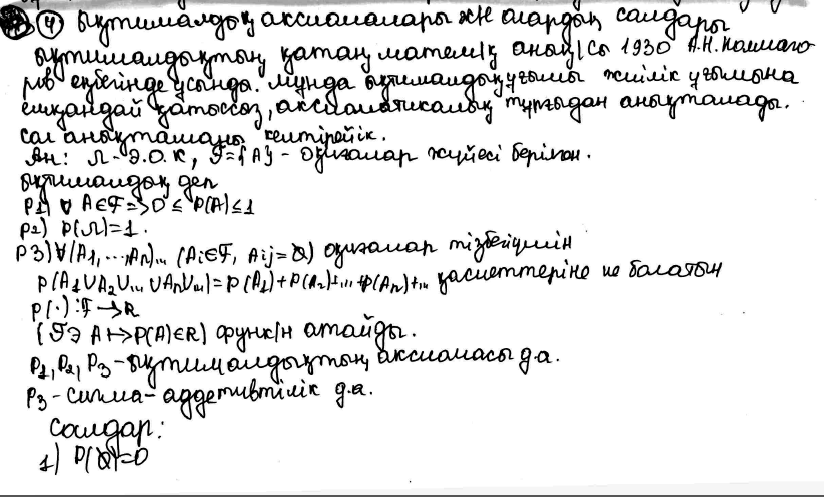 ④ Ықтималдық аксиомалары ж/е олардың салдары
Ықтималдықтың қатаң матем/қ анық/сы 1930 А.Н. Колмаго
ров еңбегінде ұсынды. Мұнда ықтималдық ұғымы жиілік ұғымына
ешқандай қатыссыз, аксиоматикалық тұрғыдан анықталады.
Сол анықтаманы келтірейік.
Ан: Ω - Э.О.К, ℱ={A} - оқиғалар жүйесі берілген.
Ықтималдық деп
P1) ∀ A∈ℱ => 0 ≤ P(A) ≤ 1
P2) P(Ω)=1.
P3) ∀(A₁,...,Aₙ)... (Ai∈ℱ, Aij=∅) оқиғалар тізбейімін
P(A₁∪A₂∪...∪Aₙ∪...)=P(A₁)+P(A₂)+...+P(Aₙ)+... қасиеттеріне ие болатын
P(·):ℱ→R
(ℱ∋ A↦P(A)∈R) функ/н атайды.
P₁, P₂, P₃ - ықтималдықтың аксиомасы д.а.
P₃ - сигма-аддетивтілік д.а.
Салдар:
1) P(∅)=0